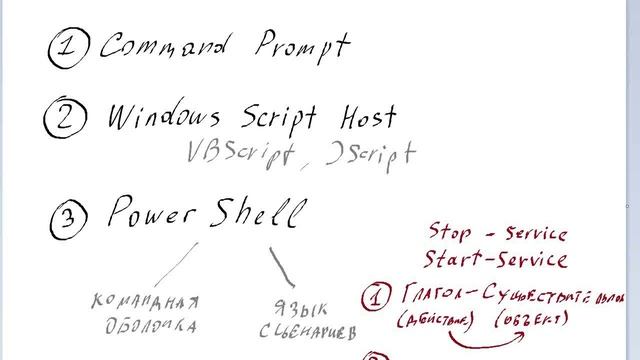 1 Command Prompt
2 Windows Script Host
VBScript, JScript
3 Power Shell
КОМАНДНАЯ ОБОЛОЧКА
ЯЗЫК СЦЕНАРИЕВ
Stop - Service
Start-Service
1 Глагол-Существительное
(действие) (объект)